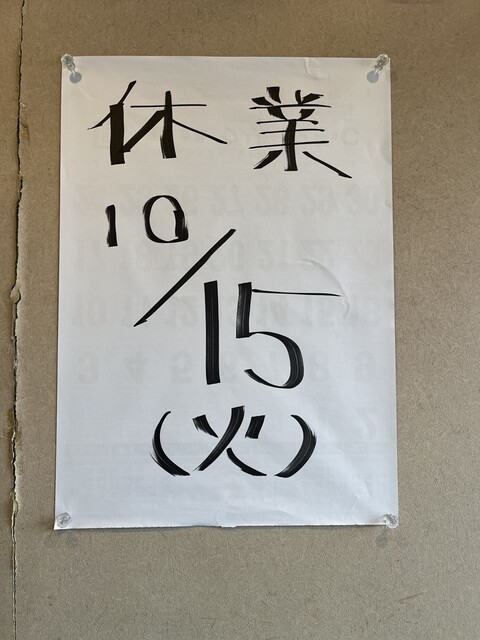 休業
10/15
(火)